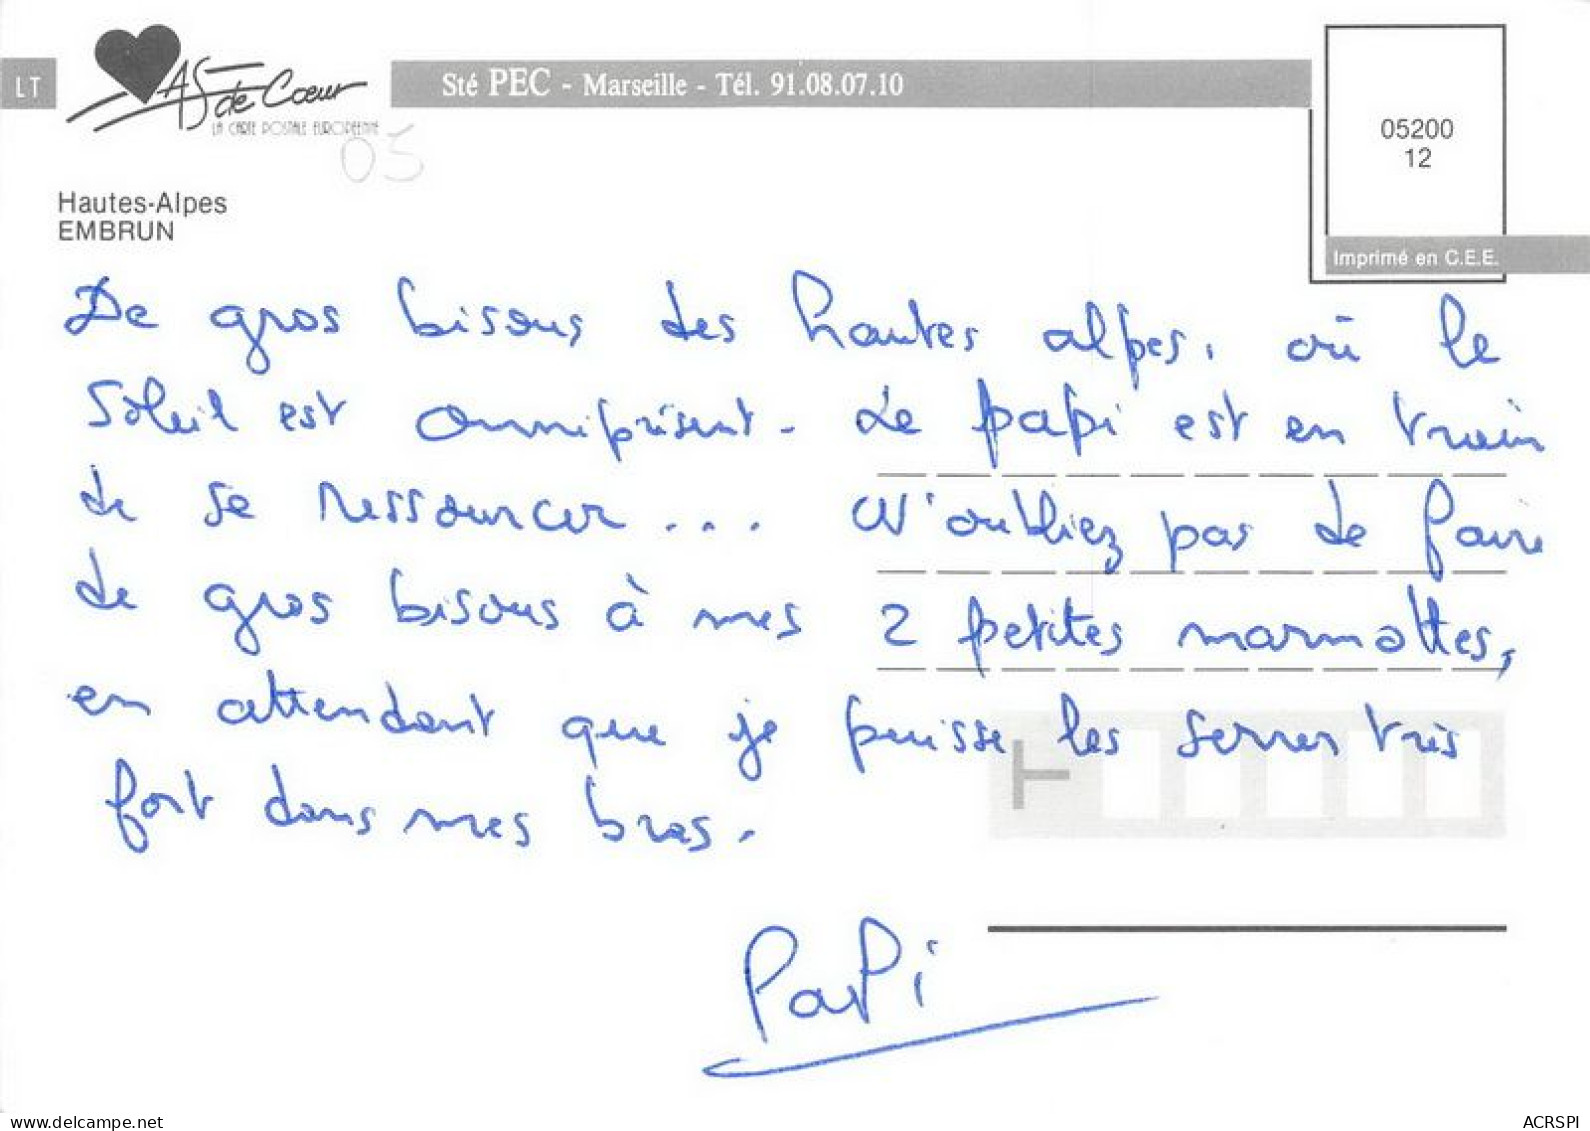 LT
AS de Cœur
LA CARTE POSTALE EUROPÉENNE
Sté PEC - Marseille - Tél. 91.08.07.10
05200
12
Imprimé en C.E.E.
05
Hautes-Alpes
EMBRUN
De gros bisous des hautes alpes, où le
soleil est omniprésent. Le papi est en train
de se ressourcer... N'oubliez pas de faire
de gros bisous à mes 2 petites marmottes,
en attendant que je puisse les serrer très
fort dans mes bras.
PaPi
delcampe.net
ACRSPI